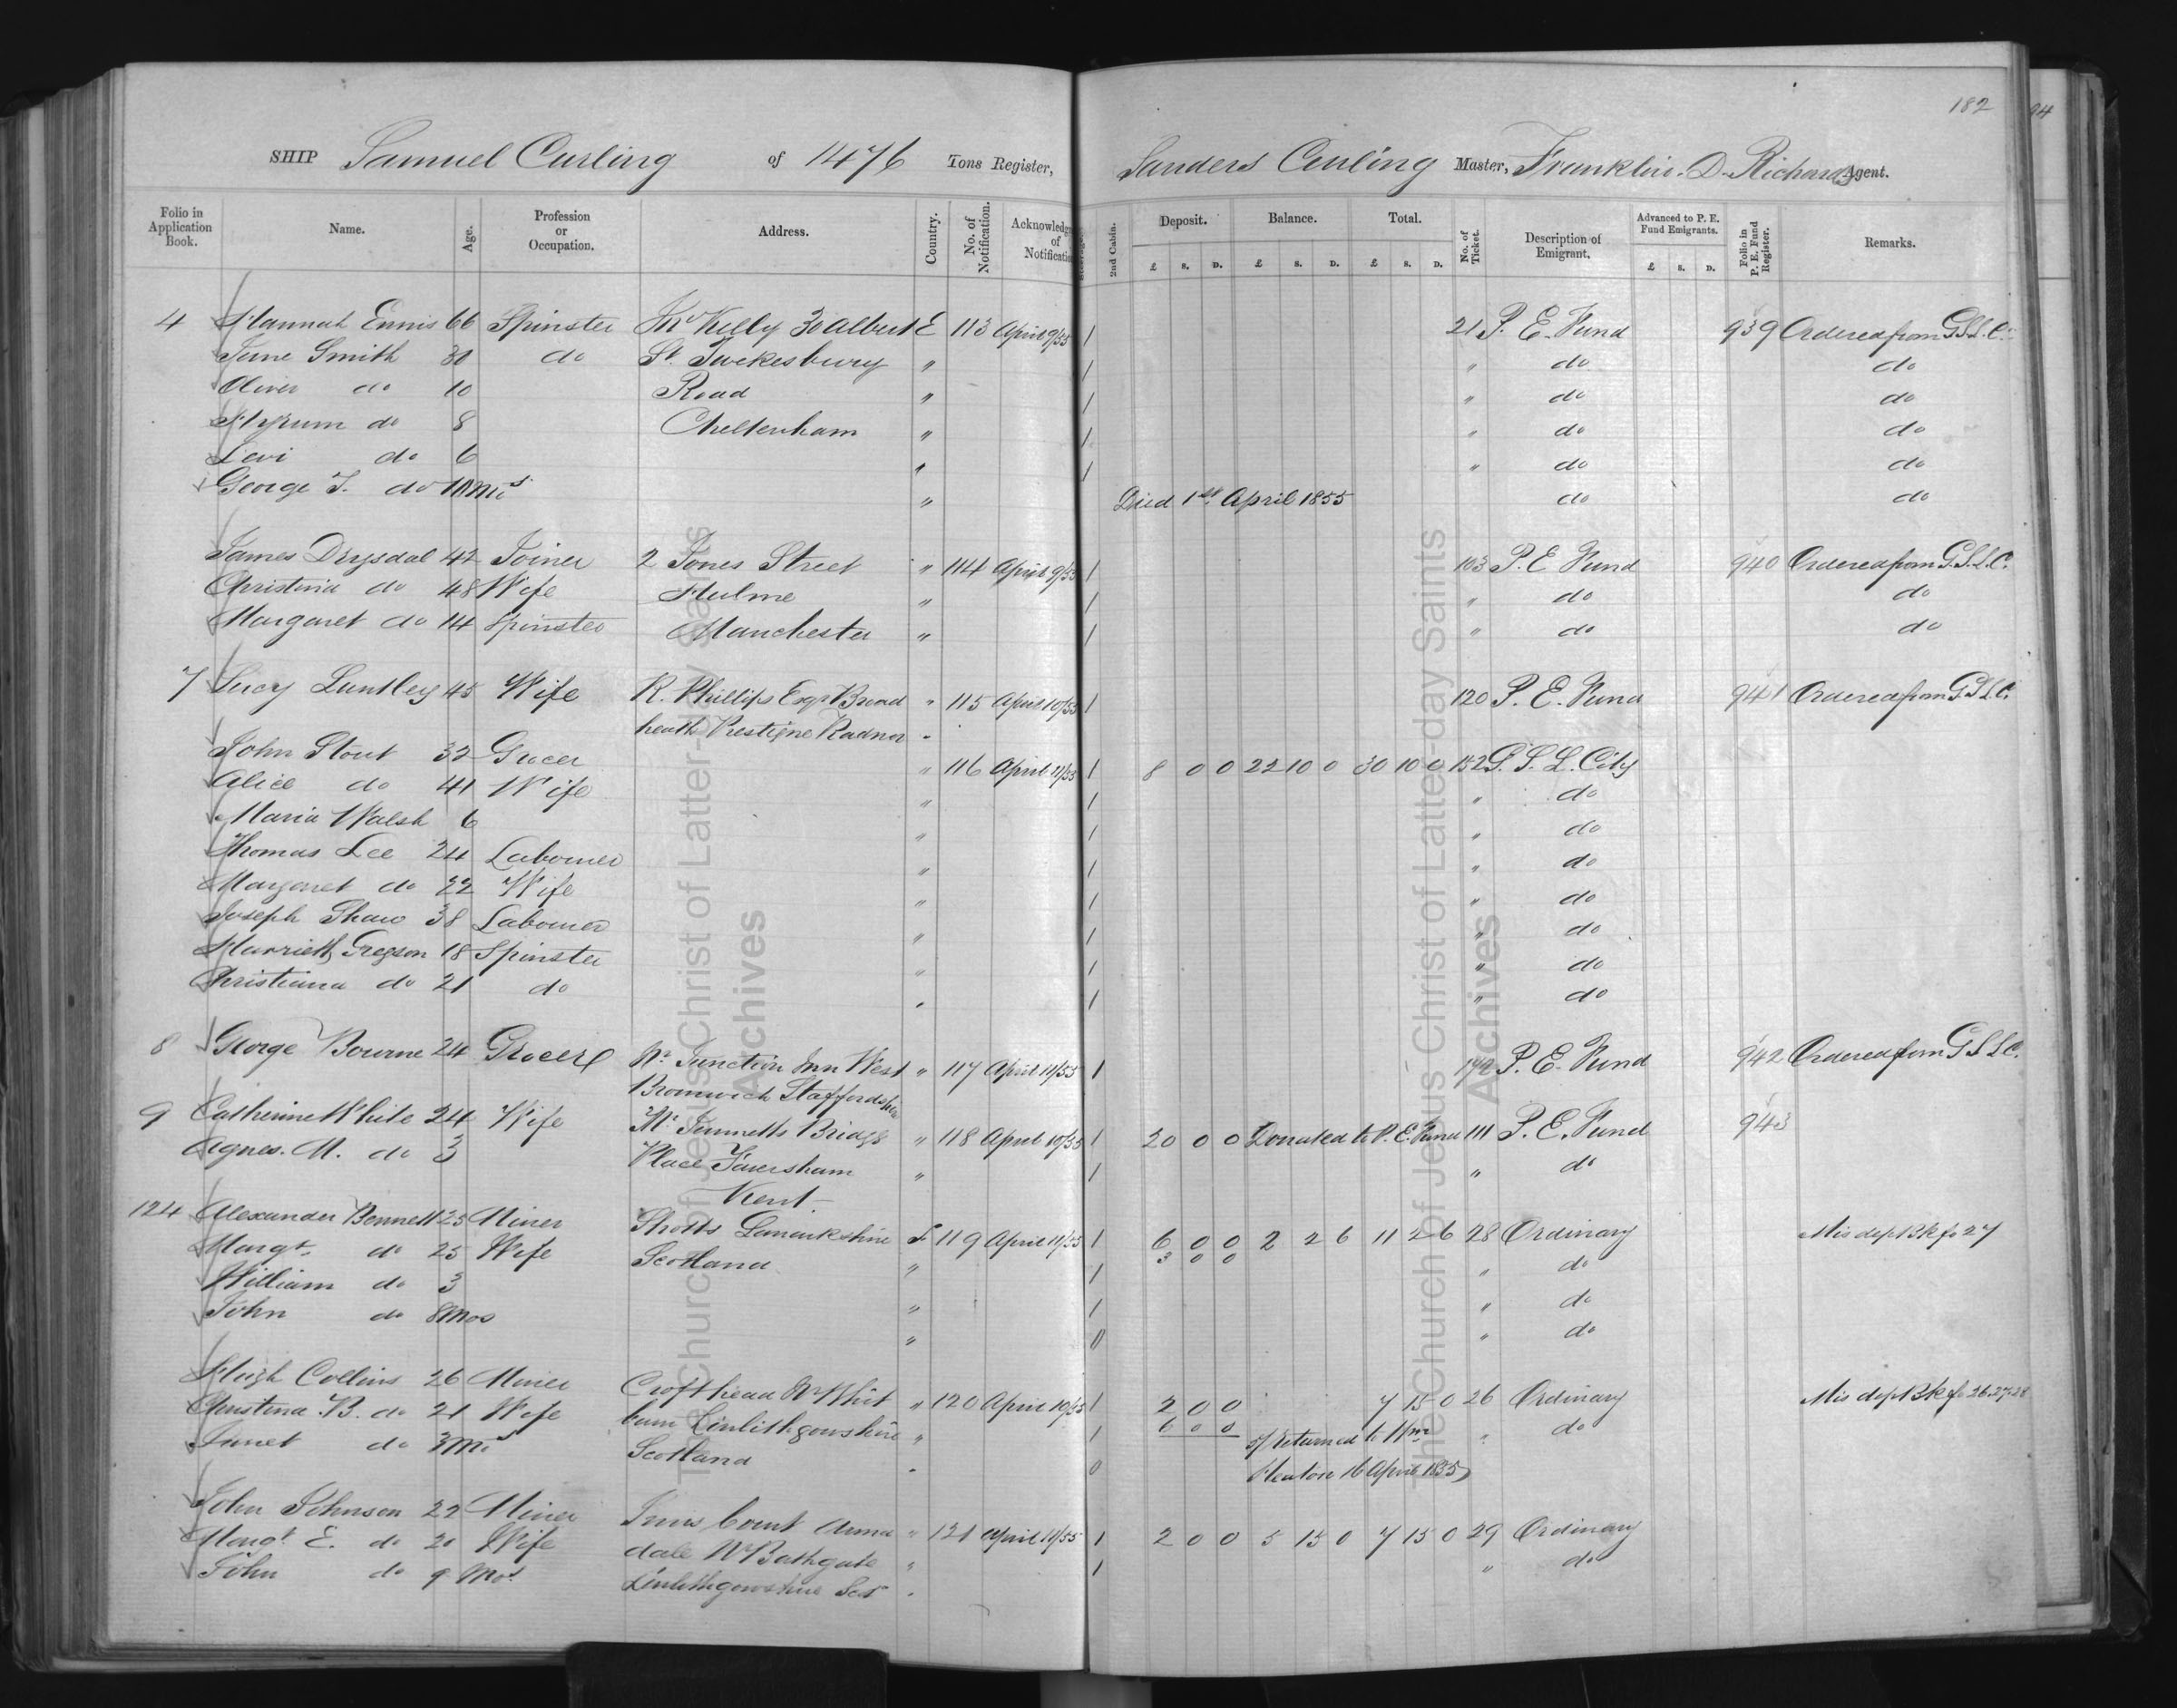 182
94
SHIP Samuel Curling of 1476 Tons Register, Sanders Curling Master, Franklin D. Richards Agent.
Folio in Application Book. Name. Age. Profession or Occupation. Address. Country. No. of Notification. Acknowledg of Notificatio 2nd Cabin. Deposit. Balance. Total. No. of Ticket. Description of Emigrant. Advanced to P. E. Fund Emigrants. Folio in P. E. Fund Register. Remarks.
£ S. D. £ S. D. £ S. D. £ S. D.
4 Hannah Ennis 66 Spinster Mr Kelly 30 Albert E 113 April 9/55 1 21 P. E. Fund 939 Ordered from G.S.L.C.
Jane Smith 30 do St. Twekesbury " 1 " do do
Oliver do 10 Road " 1 " do do
Hyrum do 8 Cheltenham " 1 " do do
Levi do 6 " 1 " do do
George J. do 10 Mos " Died 1st April 1855 do do
James Drysdal 42 Joiner 2 Jones Street " 114 April 9/55 1 103 P. E Fund 940 Ordered from G.S.L.C.
Christina do 48 Wife Hulme " 1 " do do
Margaret do 14 Spinster Manchester " 1 " do do
7 Lucy Luntley 45 Wife R. Phillips Esqr Broad " 115 April 10/55 1 120 P. E. Fund 941 Ordered from G.S.L.C.
heath Prestigne Radnor "
John Stout 32 Grocer " 116 April 11/55 1 8 0 0 22 10 0 30 10 0 152 G. S. L. City
Alice do 41 Wife " 1 " do
Maria Walsh 6 " 1 " do
Thomas Lee 24 Labourer " 1 " do
Margaret do 22 Wife " 1 " do
Joseph Shaw 38 Labourer " 1 " do
Harriett Gregson 18 Spinster " 1 " do
Christiana do 21 do " 1 " do
8 George Bourne 24 Grocer Nr Junction Inn West " 117 April 11/55 1 172 P. E. Fund 942 Ordered from G S L C.
Bromwich Staffordshire
9 Catherine White 24 Wife Mr Jemmetts Bridge " 118 April 10/55 1 20 0 0 Donated to P. E. Fund 111 P. E. Fund 943
Agnes. M. do 3 Place Faversham " 1 " do
Kent
124 Alexander Bennett 25 Miner Shotts Lanarkshire S 119 April 11/55 1 6 0 0 2 2 6 11 2 6 28 Ordinary Mis dep Bk fo 27
Margt. do 25 Wife Scotland " 1 3 0 0 " do
William do 3 " 1 " do
John do 8 Mos " 0 " do
Hugh Collins 26 Miner Crofthead Nr Whit " 120 April 10/55 1 2 0 0 7 15 0 26 Ordinary Mis dep Bk fo 26.27.28
Christina. B. do 21 Wife burn Linlithgowshire " 1 6 0 0 5/ returned to Wm " do
Janet do 3 Mos Scotland " 0 Heaton 16 April 1855)
John Johnson 22 Miner Inns Court Arma " 121 April 11/55 1 2 0 0 5 15 0 7 15 0 29 Ordinary
Margt E. do 20 Wife dale Nr Bathgate " 1 " do
John do 9 Mos. Linlithgowshire Scot "
The Church of Jesus Christ of Latter-day Saints
Archives
The Church of Jesus Christ of Latter-day Saints
Archives